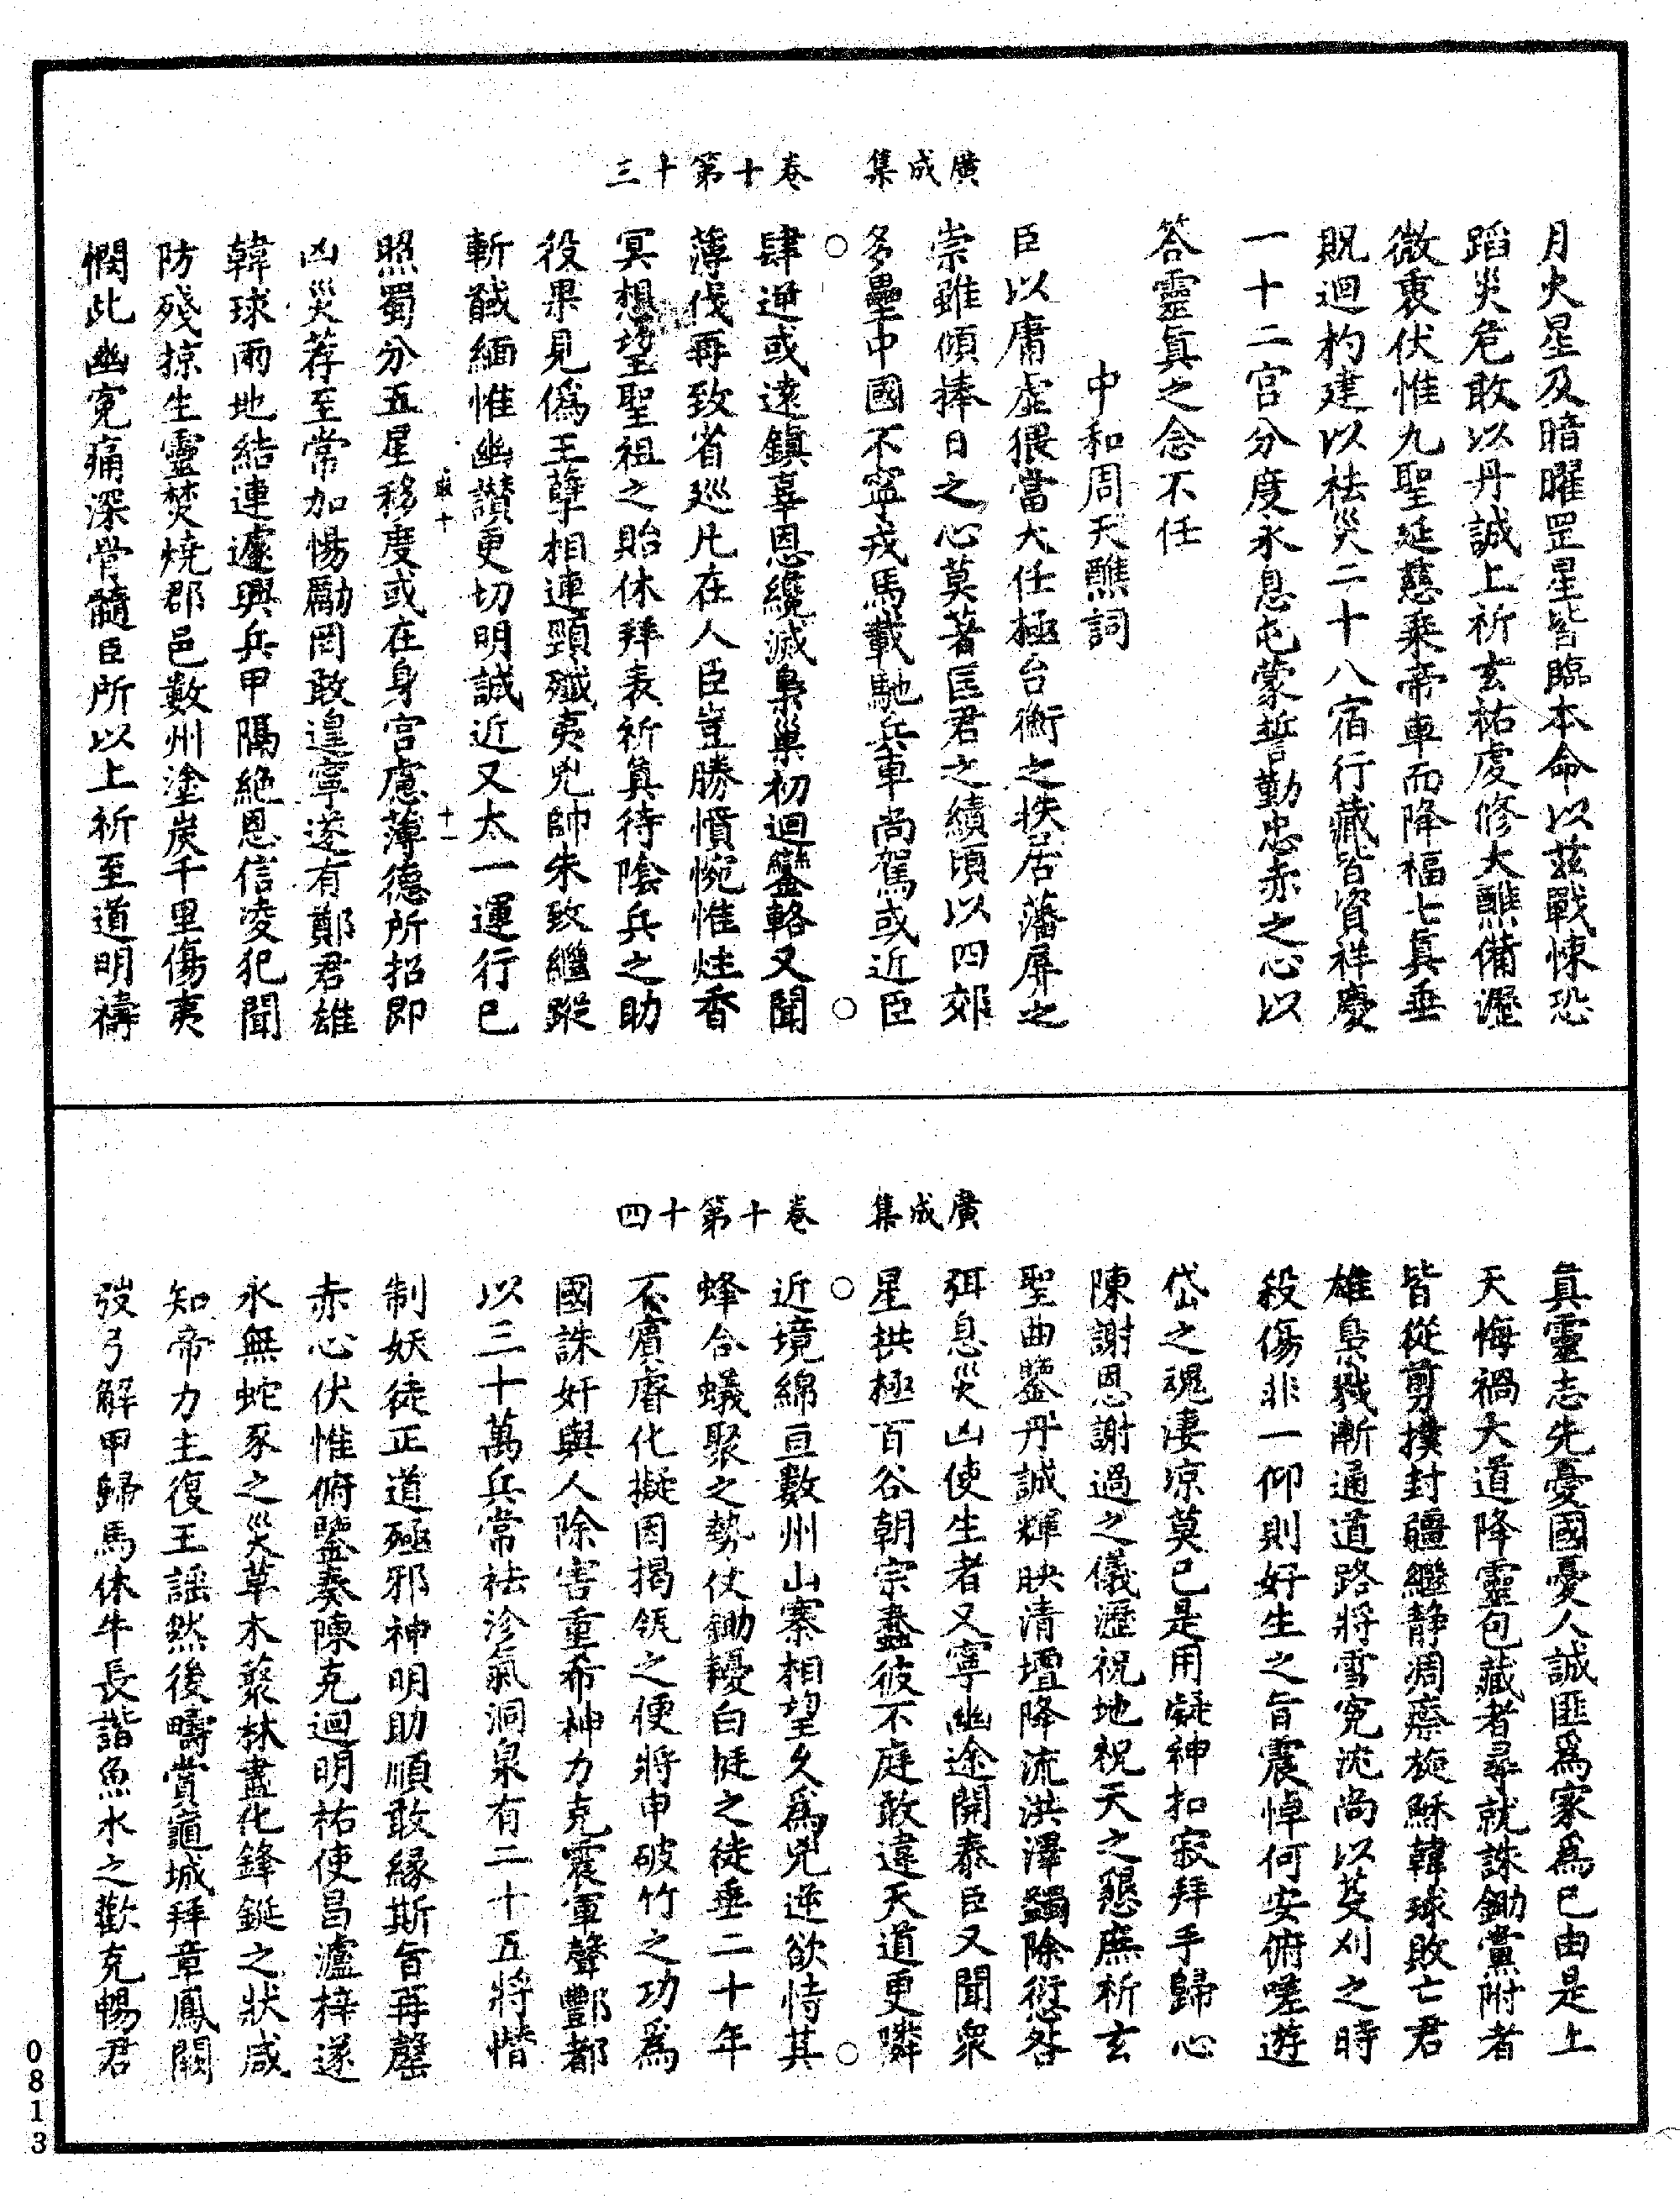 廣成集　卷十第十三
月火星及暗曜罡星皆臨本命以茲戰悚恐
蹈災危敢以丹誠上祈玄祐虔修大醮備瀝
微衷伏惟九聖延慈乘帝車而降福七眞垂
貺迴杓建以祛災二十八宿行藏皆資祥慶
一十二宫分度永息屯蒙誓勤忠赤之心以
答靈眞之念不任
中和周天醮詞
臣以庸虛猥當大任極台衡之秩居藩屏之
崇雖傾捧日之心莫著匡君之績頃以四郊
多壘中國不寧戎馬載馳兵車尚駕或近臣
肆逆或遠鎮辜恩纔滅梟巢初迴鑾輅又聞
薄伐再致省廵凡在人臣豈勝憤惋惟炷香
冥想望聖祖之貽休拜表祈眞待隂兵之助
役果見僞王孽相連頸殲夷兇帥朱致繼蹤
斬馘緬惟幽讃更切明誠近又太一運行已
敢十
十一
照蜀分五星移度或在身宫慮薄德所招即
凶災荐至常加惕勵罔敢遑寧遂有鄭君雄
韓球兩地結連遽興兵甲隔絶恩信凌犯聞
防殘掠生靈焚燒郡邑數州塗炭千里傷夷
憫此幽寃痛深骨髓臣所以上祈至道明禱
廣成集　卷十第十四
眞靈志先憂國憂人誠匪爲家爲已由是上
天悔禍大道降靈包藏者尋就誅鋤黨附者
皆從剪撲封疆繼静凋瘵施穌韓球敗亡君
雄梟戮漸通道路將雪寃沈尚以芟刈之時
殺傷非一仰則好生之旨震悼何安俯嗟遊
岱之魂淒凉莫已是用凝神扣寂拜手歸心
陳謝恩謝過之儀瀝祝地祝天之懇庶祈玄
聖曲鑒丹誠輝映清壇降流洪澤蠲除愆咎
弭息災凶使生者又寧幽途開泰臣又聞衆
星拱極百谷朝宗蠢彼不庭敢違天道更隣
近境綿亘數州山寨相望久爲兇逆欲恃其
蜂合蟻聚之勢仗鋤耰白梃之徒垂二十年
不賓睿化擬因揭瓴之便將申破竹之功爲
國誅奸與人除害重希神力克震軍聲酆都
以三十萬兵常祛沴氣洞泉有二十五將惜
制妖徒正道殛邪神明助順敢緣斯旨再罄
赤心伏惟俯鑒奏陳克迴明祐使昌瀘梓遂
永無蛇豕之災草木藂林盡化鋒鋋之狀咸
知帝力主復王謡然後疇賞龜城拜章鳳闕
弢弓解甲歸馬休牛長諧魚水之歡克暢君
0813